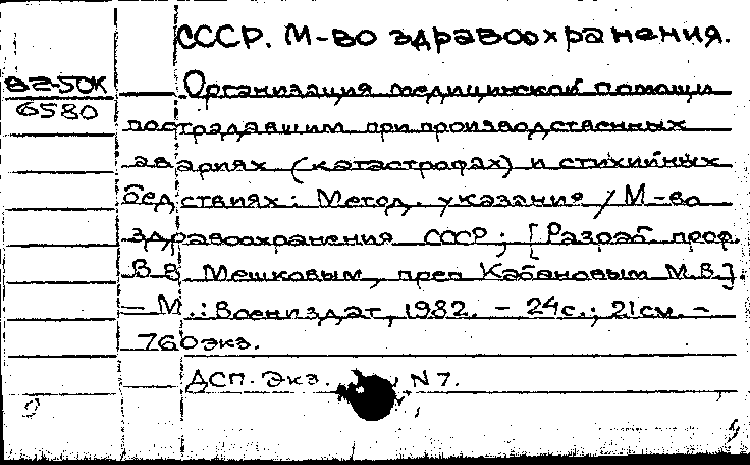 СССР. М-во здравоохранения.
82-50К
6580
Организация медицинской помощи
пострадавшим при производственных
авариях (катастрофах) и стихийных
бедствиях: Метод. указания / М-во
здравоохранения СССР; [Разраб. проф.
В.В. Мешковым, преп Кабановым М.В.].
— М.: Воениздат, 1982. - 24с.; 21см. -
760экз.
ДСП. Экз. N 7.